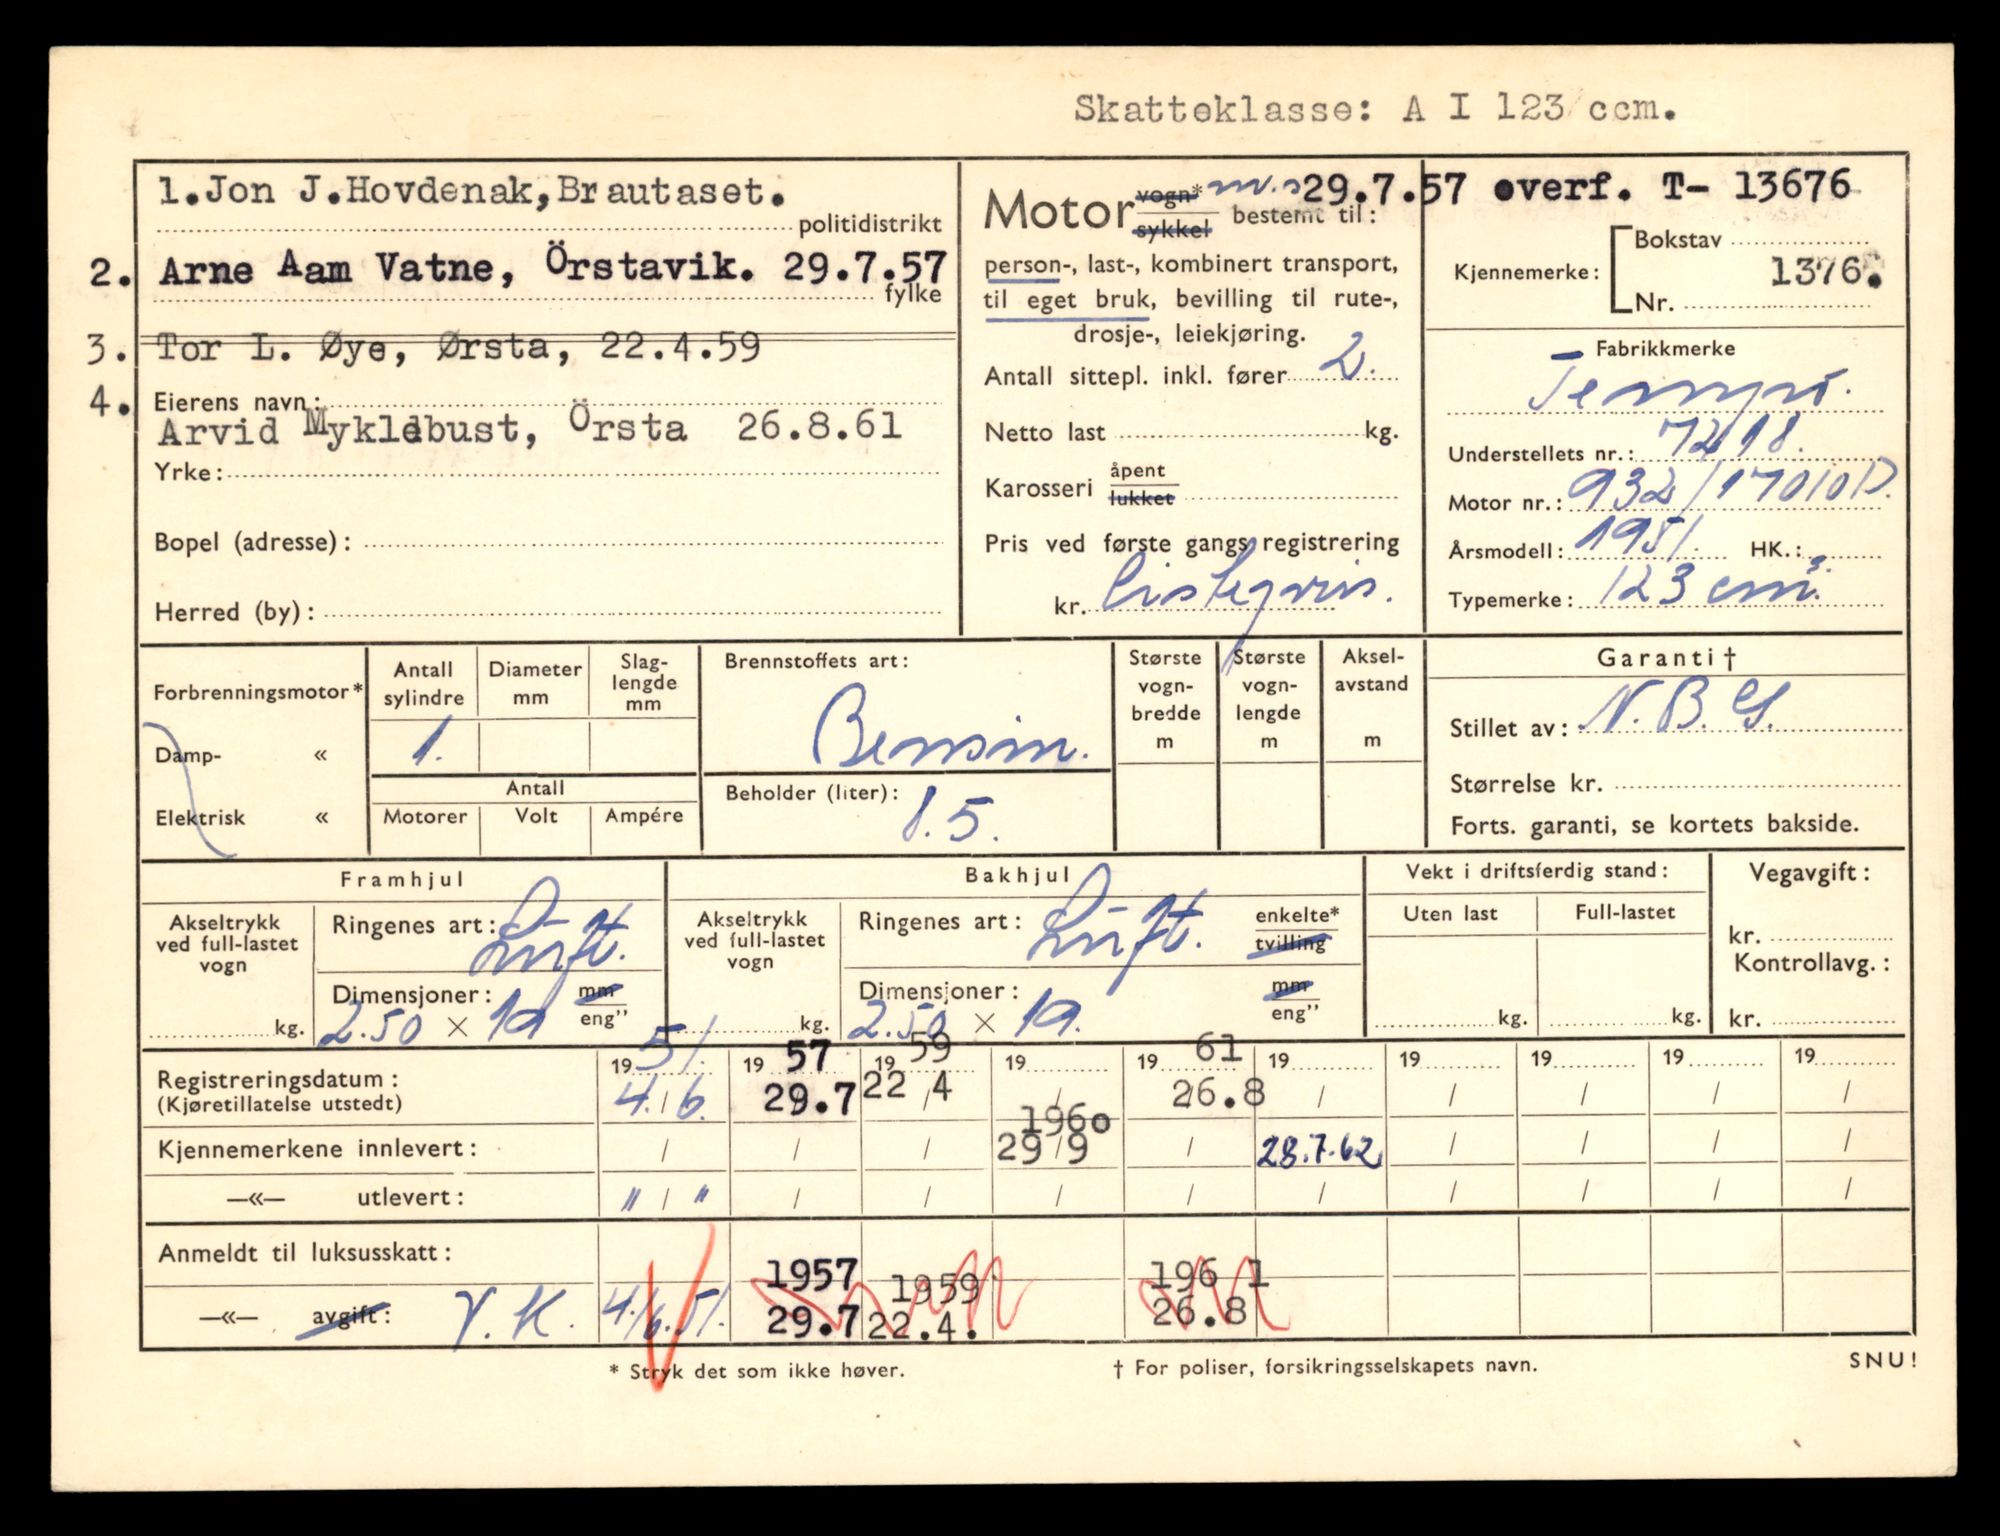 Skatteklasse: A I 123 ccm.
1. Jon J. Hovdenak, Brautaset.
politidistrikt
2. Arne Aam Vatne, Örstavik. 29.7.57
fylke
3. Tor L. Øye, Ørsta, 22.4.59
4. Eierens navn:
Arvid Myklebust, Örsta 26.8.61
Yrke:
Bopel (adresse):
Herred (by):
Motor vogn* sykkel bestemt til:
29.7.57 overf. T- 13676
person-, last-, kombinert transport,
til eget bruk, bevilling til rute-,
drosje-, leiekjøring.
Antall sittepl. inkl. fører 2.
Netto last kg.
Karosseri åpent lukket
Pris ved første gangs registrering
kr. Listepris.
Kjennemerke: Bokstav
Nr. 1376.
Fabrikkmerke
Tempo.
Understellets nr.: 7218.
Motor nr.: 932/17010D.
Årsmodell: 1951. HK.:
Typemerke: 123 cm³.
Forbrenningsmotor*
Damp- «
Elektrisk «
Antall sylindre
1.
Diameter mm
Slaglengde mm
Antall
Motorer Volt Ampére
Brennstoffets art:
Bensin.
Beholder (liter): 8.5.
Største vognbredde m
Største vognlengde m
Akselavstand m
Garanti †
Stillet av: N.B.G.
Størrelse kr.
Forts. garanti, se kortets bakside.
Framhjul
Akseltrykk ved full-lastet vogn
kg.
Ringenes art: Luft.
Dimensjoner: mm eng"
2.50 × 19
Bakhjul
Akseltrykk ved full-lastet vogn
kg.
Ringenes art: Luft. enkelte* tvilling
Dimensjoner: mm eng"
2.50 × 19.
Vekt i driftsferdig stand:
Uten last Full-lastet
kg. kg.
Vegavgift:
kr.
Kontrollavg.:
kr.
19 51. 19 57 19 59 19 19 61 19 19 19 19 19
Registreringsdatum:
(Kjøretillatelse utstedt)
4./6. 29.7 22/4 / 26.8 / / / / /
Kjennemerkene innlevert: / / / 1960 29/9 / 28.7.62 / / / /
—«— utlevert: " / " / / / / / / / / /
Anmeldt til luksusskatt: 1957 1959 1961
—«— avgift: V.K. 4/6.51. 29.7 22.4. 26.8
* Stryk det som ikke høver.
† For poliser, forsikringsselskapets navn.
SNU!